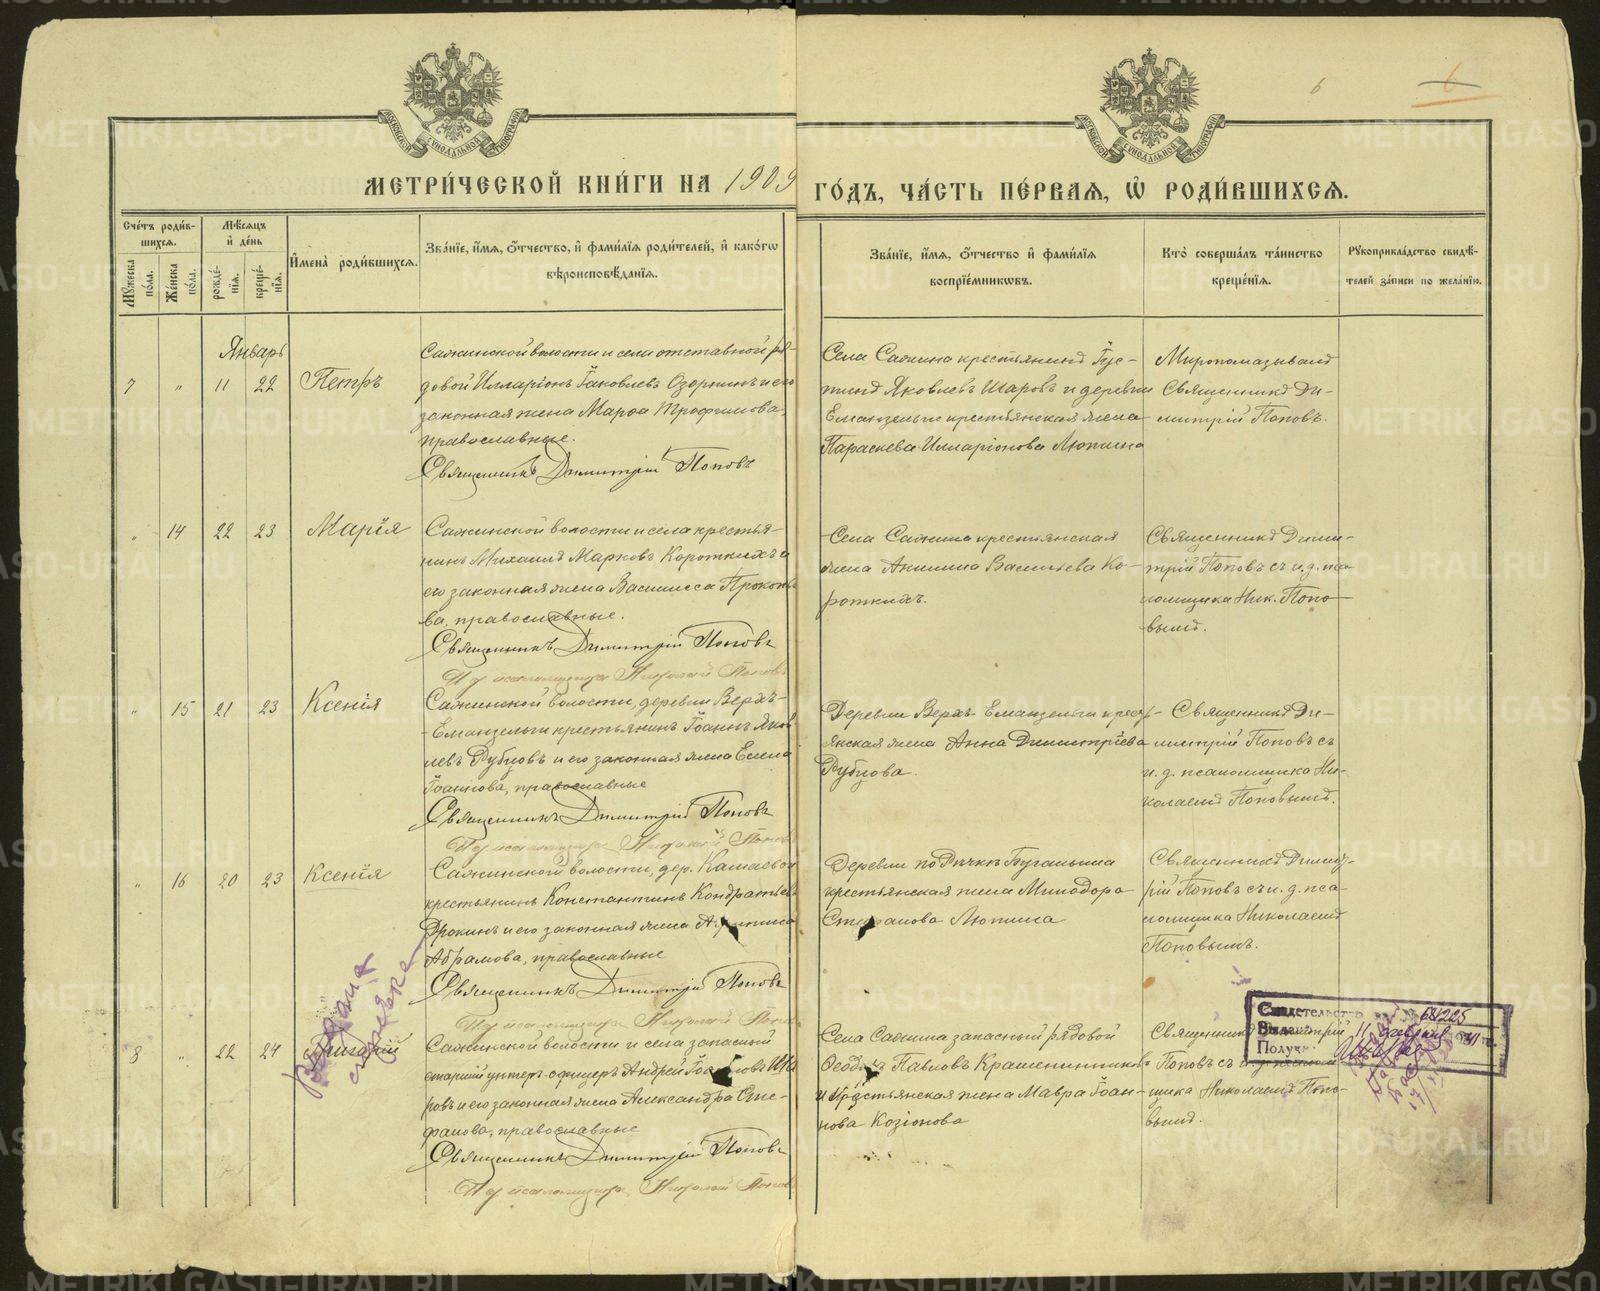 МЕТРИ́ЧЕСКОЙ КНИ́ГИ НА 1909 ГО́ДЪ, ЧА́СТЬ ПЕ́РВАЯ, Ѽ РОДИ́ВШИХСЯ.
6
6
Сче́тъ роди́в-
шихся.
Мѣ́сяцъ
и҆ де́нь
И҆мена̀ роди́вшихся.
Зва́нїе, и҆́мя, ѻ҆́тчество, и҆ фами́лїя роди́телей, и҆ како́гѡ
вѣроисповѣ́данїя.
Зва́нїе, и҆́мя, ѻ҆́тчество и҆ фами́лїя
воспрїе́мникѡвъ.
Кто̀ соверша́лъ та́инство
креще́нїя.
Рꙋкоприкла́дство свидѣ́-
телей за́писи по жела́нїю.
Мꙋ́жеска
по́ла.
Же́нска
по́ла.
рожде́-
нїя.
креще́-
нїя.
Январь
7 " 11 22 Петръ
Сажинской волости и села отставной ря-
довой Илларіонъ Іаковлевъ Озорнинъ и его
законная жена Марѳа Трофимова,
православные.
Священникъ Димитрій Поповъ
Села Сажина крестьянинъ Іус-
тинъ Яковлевъ Шаровъ и деревни
Еманзельги крестьянская жена
Параскева Илларіонова Люпина
Миропомазывалъ
Священникъ Ди-
митрій Поповъ.
" 14 22 23 Марія
Сажинской волости и села крестья-
нинъ Михаилъ Марковъ Короткихъ и
его законная жена Василисса Прокопь
ва, православные.
Священникъ Димитрій Поповъ
И д псаломщика Николай Поповъ
Села Сажина крестьянская
жена Акилина Васильева Ко-
роткихъ.
Священникъ Дими-
трій Поповъ съ и. д. пса-
ломщика Ник. Попо-
вымъ.
" 15 21 23 Ксенія
Сажинской волости, деревни Верхъ-
Еманзельги крестьянинъ Іоаннъ Яков
левъ Рубцовъ и его законная жена Елена
Іоаннова, православные
Священникъ Димитрій Поповъ
И д псаломщика Николай Поповъ
Деревни Верхъ-Еманзельги крест-
янская жена Анна Димитріева
Рубцова.
Священникъ Ди-
митрій Поповъ съ
и. д. псаломщика Ни-
колаемъ Поповымъ.
" 16 20 23 Ксенія
Сажинской волости, дер. Камаевой
крестьянинъ Константинъ Кондратьевъ
Дрокинъ и его законная жена
Абрамова, православные
Священникъ Димитрій Поповъ
И д псаломщика Николай Попов
Деревни по Рѣчкѣ Бугалышъ
крестьянская жена Минодора
Стефанова Люпина
Священникъ Димит-
рій Поповъ съ и. д. пса-
ломщика Николаемъ
Поповымъ.
8 " 22 24 Григорій
Выдана
справка
Сажинской волости и села запасный
старшій унтеръ-офицеръ Андрей Ша
ровъ и его законная жена Александра Сте-
фанова, православные
Священникъ Димитрій Поповъ
И д псаломщика Николай Поповъ
Села Сажина запасный рядовой
Павловъ Крашенинниковъ
и крестьянская жена Мавра Іоан-
нова Козіонова
Священникъ Димитрій
Поповъ съ и. д. псалом-
щика Николаемъ Попо-
вымъ.
Свидѣтельство № 68/225
Выдано 11 февраля
Получ
METRIKI.GASO-URAL.RU